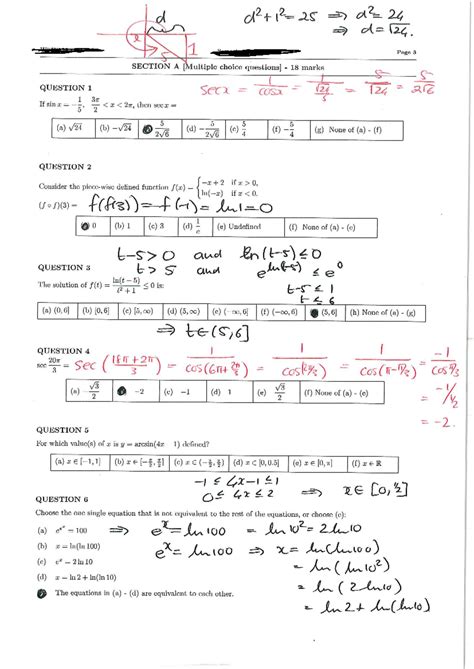 d
d²+1²=25 ⇒ d²=24
⇒ d=√24.
1
5
Page 3
SECTION A [Multiple choice questions] - 18 marks
QUESTION 1
If sin x = −1/5, 3π/2 < x < 2π, then sec x =
sec x = 1/cos x = 1/(√24/5) = 5/√24 = 5/2√6
(a) √24 (b) −√24 5/2√6 (d) −5/2√6 (e) 5/4 (f) −5/4 (g) None of (a) - (f)
QUESTION 2
Consider the piece-wise defined function f(x) = { −x + 2 if x > 0, ln(−x) if x < 0.
(f ∘ f)(3) = f(f(3)) = f(-1) = ln 1 = 0
0 (b) 1 (c) 3 (d) 1/e (e) Undefined (f) None of (a) - (e)
t-5>0 and ln(t-5) ≤ 0
QUESTION 3
t > 5 and e^ln(t-5) ≤ e⁰
The solution of f(t) = ln(t − 5)/(t² + 1) ≤ 0 is:
t-5 ≤ 1
t ≤ 6
(a) (0, 6] (b) [0, 6] (c) [5, ∞) (d) (5, ∞) (e) (−∞, 6] (f) (−∞, 6) (5, 6] (h) None of (a) - (g)
⇒ t∈(5,6]
QUESTION 4
sec 20π/3 = sec(18π+2π/3) = 1/cos(6π+2π/3) = 1/cos(2π/3) = 1/cos(π-π/3) = -1/cos π/3
= -1/½
= -2.
(a) −√3/2 −2 (c) −1 (d) 1 (e) √3/2 (f) None of (a) - (e)
QUESTION 5
For which value(s) of x is y = arcsin(4x − 1) defined?
(a) x ∈ [−1, 1] (b) x ∈ [−π/2, π/2] (c) x ∈ (−π/2, π/2) (d) x ∈ [0, 0.5] (e) x ∈ [0, π] (f) x ∈ ℝ
-1 ≤ 4x-1 ≤ 1
0 ≤ 4x ≤ 2 ⇒ x∈[0,½]
QUESTION 6
Choose the one single equation that is not equivalent to the rest of the equations, or choose (e):
(a) e^e^x = 100 ⇒ e^x = ln 100 = ln 10² = 2 ln 10
(b) x = ln(ln 100) e^x = ln 100 ⇒ x = ln(ln 100)
(c) e^x = 2 ln 10 = ln(ln 10²)
(d) x = ln 2 + ln(ln 10) = ln(2 ln 10)
The equations in (a) - (d) are equivalent to each other.
= ln 2 + ln(ln 10)